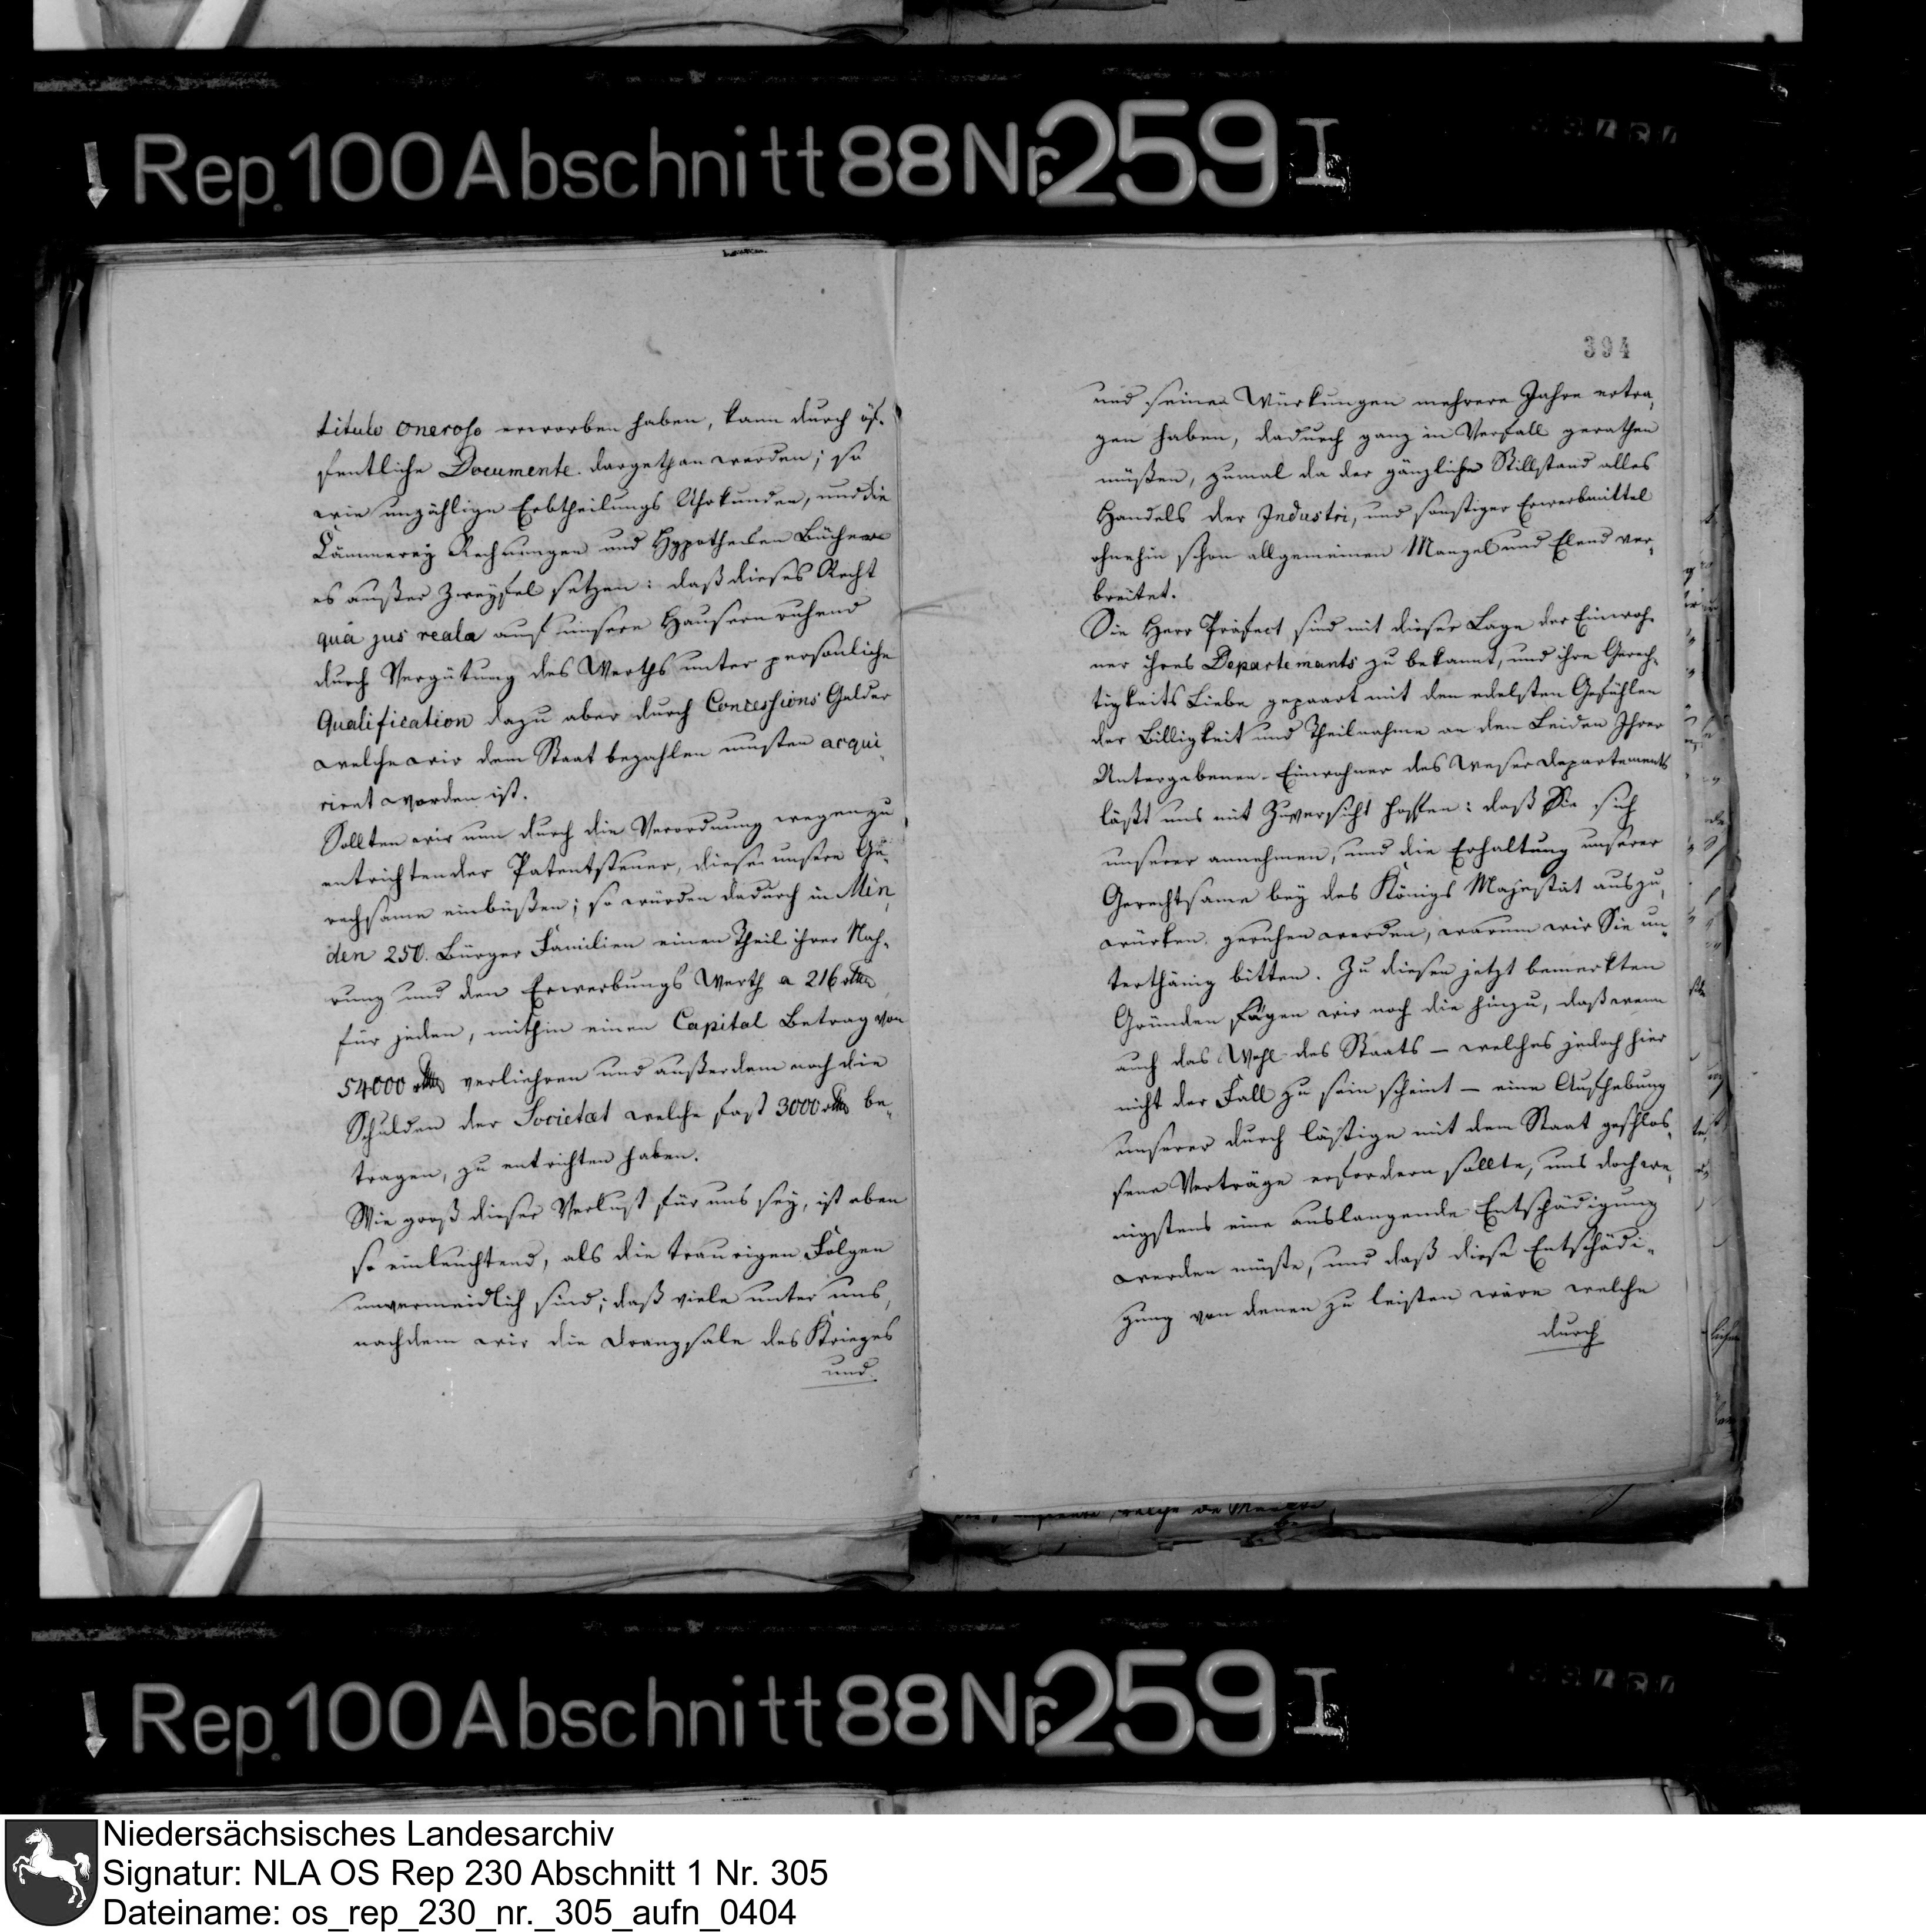 Rep. 100 Abschnitt 88 Nr. 259 I
titulo oneroso erworben haben, kann durch öf-
fentliche Documente dargethan werden; so
wie unzählige Erbtheilungs Uhrkunden, und die
Kämmerey Rechnungen und Hypothecken Bücher
es außer Zweyfel setzen: daß dieses Recht
qua jus reale auf unsere Hausern ruhend
durch Vergütung des Werths unter persönliche
Qualification dazu aber durch Concessions Gelder
welche wir dem Staat bezahlen musten acqui-
rirt worden ist.
Sollten wir nun durch die Verordnung wegen zu
entrichtender Patentsteuer, diese unsere Ge-
rechsame einbüßen; so würden dadurch in Min
den 250. Bürger Familien einen Theil ihrer Nah-
rung und den Erwerbungs Werth a 216 rthlr
für jeden, mithin einen Capital Betrag von
54000 rthlr verliehren und außerdem noch die
Schulden der Societæt welche fast 3000 rthlr be-
tragen, zu entrichten haben.
Wie groß dieser Verlust für uns sey, ist eben
so einleuchtend, als die traurigen Folgen
unvermeidlich sind; daß viele unter uns,
nachdem wir die Drangsale des Krieges
und
394
und seiner Würkungen mehrere Jahre ertra,
gen haben, dadurch ganz in Verfall gerathen
müßen, zumal da der gänzliche Stillstand alles
Handels der Industri, und sonstiger Erwerbmittel
ohnehin schon allgemeinen Mangel und Elend ver-
breitet.
Sie Herr Präfect sind mit dieser Lage der Einwoh-
ner ihres Departements zu bekannt, und ihre Gerech-
tigkeits Liebe gepaart mit den edelsten Gefühlen
der Billigkeit und Theilnahme an den Leiden Ihrer
Untergebenen Einwohner des Weser Departements
läßt uns mit Zuversicht hoffen: daß Sie sich
unserer annehmen, und die Erhaltung unserer
Gerechtsame bey des Königs Majestät auszu,
würken geruhen werden, warum wir Sie un-
terthänig bitten. Zu diesen jetzt bemerkten
Gründen fügen wir noch die hinzu, daß wenn
auch das Wohl des Staats – welches jedoch hier
nicht der Fall zu sein scheint – eine Aufhebung
unserer durch lästige mit dem Staat geschlos,
sene Verträge erfordern sollte, uns doch we,
nigstens eine auslangende Entschädigung
werden müste, und daß diese Entschädi-
gung von denen zu leisten wäre welche
durch
Rep. 100 Abschnitt 88 Nr. 259 I
Niedersächsisches Landesarchiv
Signatur: NLA OS Rep 230 Abschnitt 1 Nr. 305
Dateiname: os_rep_230_nr._305_aufn_0404